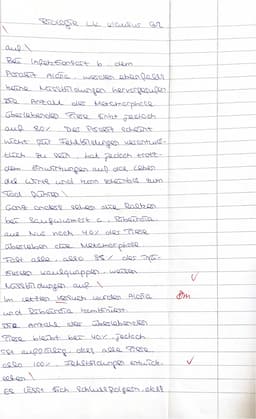 Biologie LK Klausur Q2
auf.
Bei Infektionsart b, dem
Parasit Alaria, werden ebenfalls
keine Missbildungen hervorgerufen
Die Anzahl der Metamorphose
überlebenden Tiere sinkt jedoch
auf 80%. Der Parasit scheint
nicht für Fehlbildungen verantwort-
lich zu sein, hat jedoch trotz-
dem Einwirkungen auf das Leben
des Wirts und kann ebenfalls zum
Tod führen.
Ganz anders sehen die Daten
bei Saugwurmart c, Ribeiroia,
aus. Nur noch 40% der Tiere
überleben die Metamorphose.
Fast alle, also 85% der
Kaulquappen, weisen
Missbildungen auf.
Im letzten Versuch wurden Alaria
und Ribeiroia kombiniert.
Die Anzahl der überlebenden
Tiere bleibt bei 40%, jedoch
ist auffällig, dass alle Tiere,
also 100%, Fehlbildungen
Es lässt sich schlussfolgern, dass